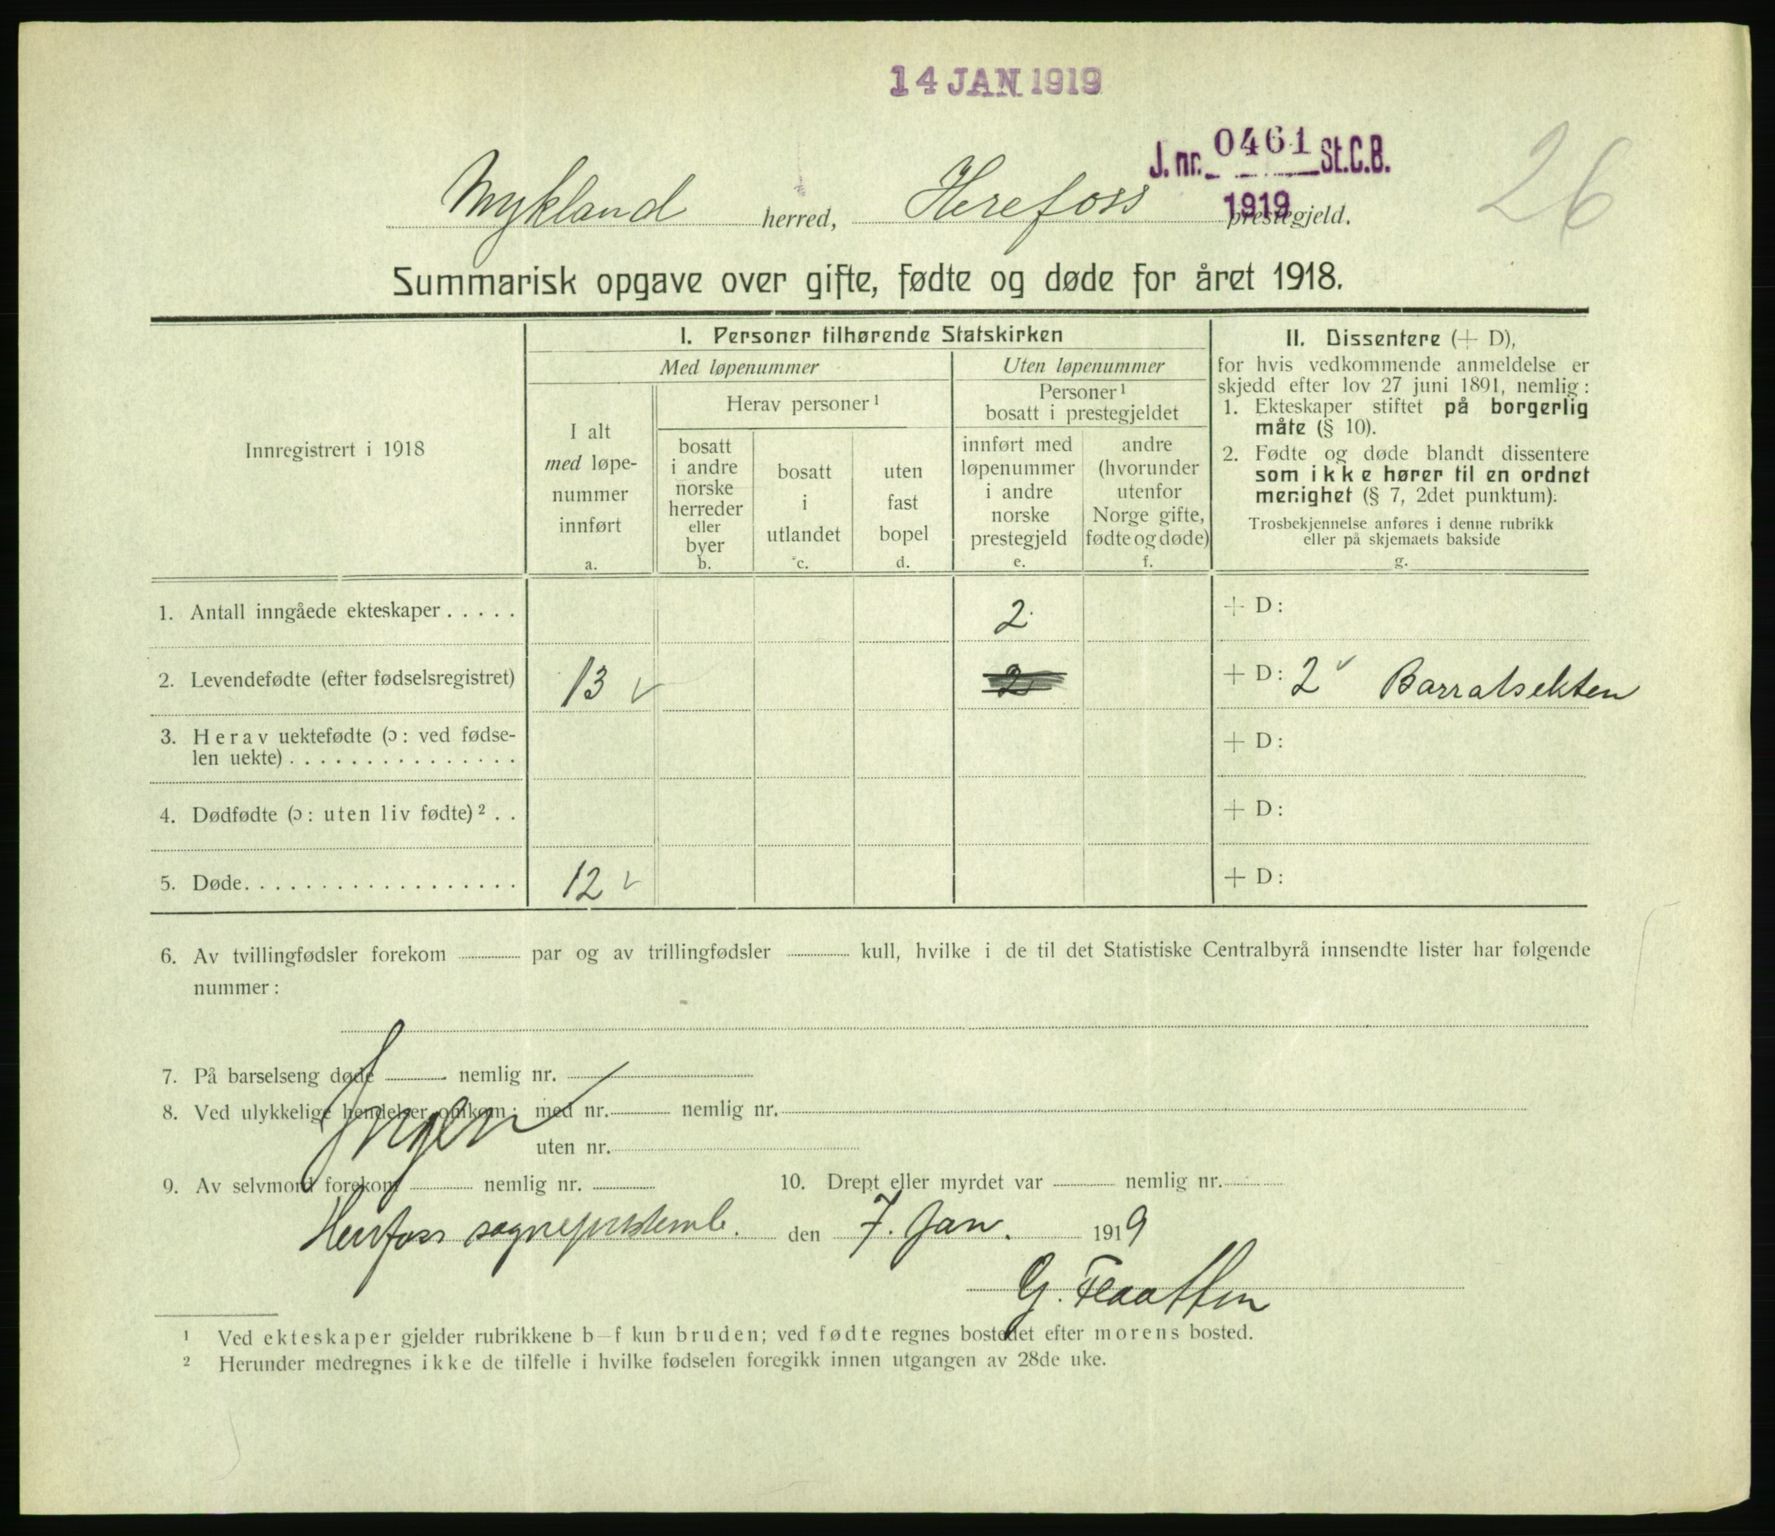 14 JAN 1919
J. nr. 0461 St.C.B.
1919
26
Mykland herred, Herefoss prestegjeld.
Summarisk opgave over gifte, fødte og døde for året 1918.
Innregistrert i 1918
I. Personer tilhørende Statskirken
Med løpenummer
Uten løpenummer
I alt
med løpe-
nummer
innført
a.
Herav personer ¹
bosatt
i andre
norske
herreder
eller
byer
b.
bosatt
i
utlandet
c.
uten
fast
bopel
d.
Personer ¹
bosatt i prestegjeldet
innført med
løpenummer
i andre
norske
prestegjeld
e.
andre
(hvorunder
utenfor
Norge gifte,
fødte og døde)
f.
II. Dissentere (+ D),
for hvis vedkommende anmeldelse er
skjedd efter lov 27 juni 1891, nemlig:
1. Ekteskaper stiftet på borgerlig
måte (§ 10).
2. Fødte og døde blandt dissentere
som ikke hører til en ordnet
menighet (§ 7, 2det punktum).
Trosbekjennelse anføres i denne rubrikk
eller på skjemaets bakside
g.
1. Antall inngåede ekteskaper . . . . . 2 + D:
2. Levendefødte (efter fødselsregistret) 13 ✓ 2 + D: 2 ✓ Barratsekten
3. Herav uektefødte (ɔ: ved fødse-
len uekte) . . . . . . . . . . . . . . . + D:
4. Dødfødte (ɔ: uten liv fødte) ² . . + D:
5. Døde. . . . . . . . . . . . . . . . . . . 12 ✓ + D:
6. Av tvillingfødsler forekom par og av trillingfødsler kull, hvilke i de til det Statistiske Centralbyrå innsendte lister har følgende
nummer:
7. På barselseng døde nemlig nr.
8. Ved ulykkelige hendelser omkom: med nr. nemlig nr.
Ingen
uten nr.
9. Av selvmord forekom nemlig nr. 10. Drept eller myrdet var nemlig nr.
Herefoss sogneprestemb. den 7. Jan. 1919
G. Flaatten
¹ Ved ekteskaper gjelder rubrikkene b–f kun bruden; ved fødte regnes bostedet efter morens bosted.
² Herunder medregnes ikke de tilfelle i hvilke fødselen foregikk innen utgangen av 28de uke.